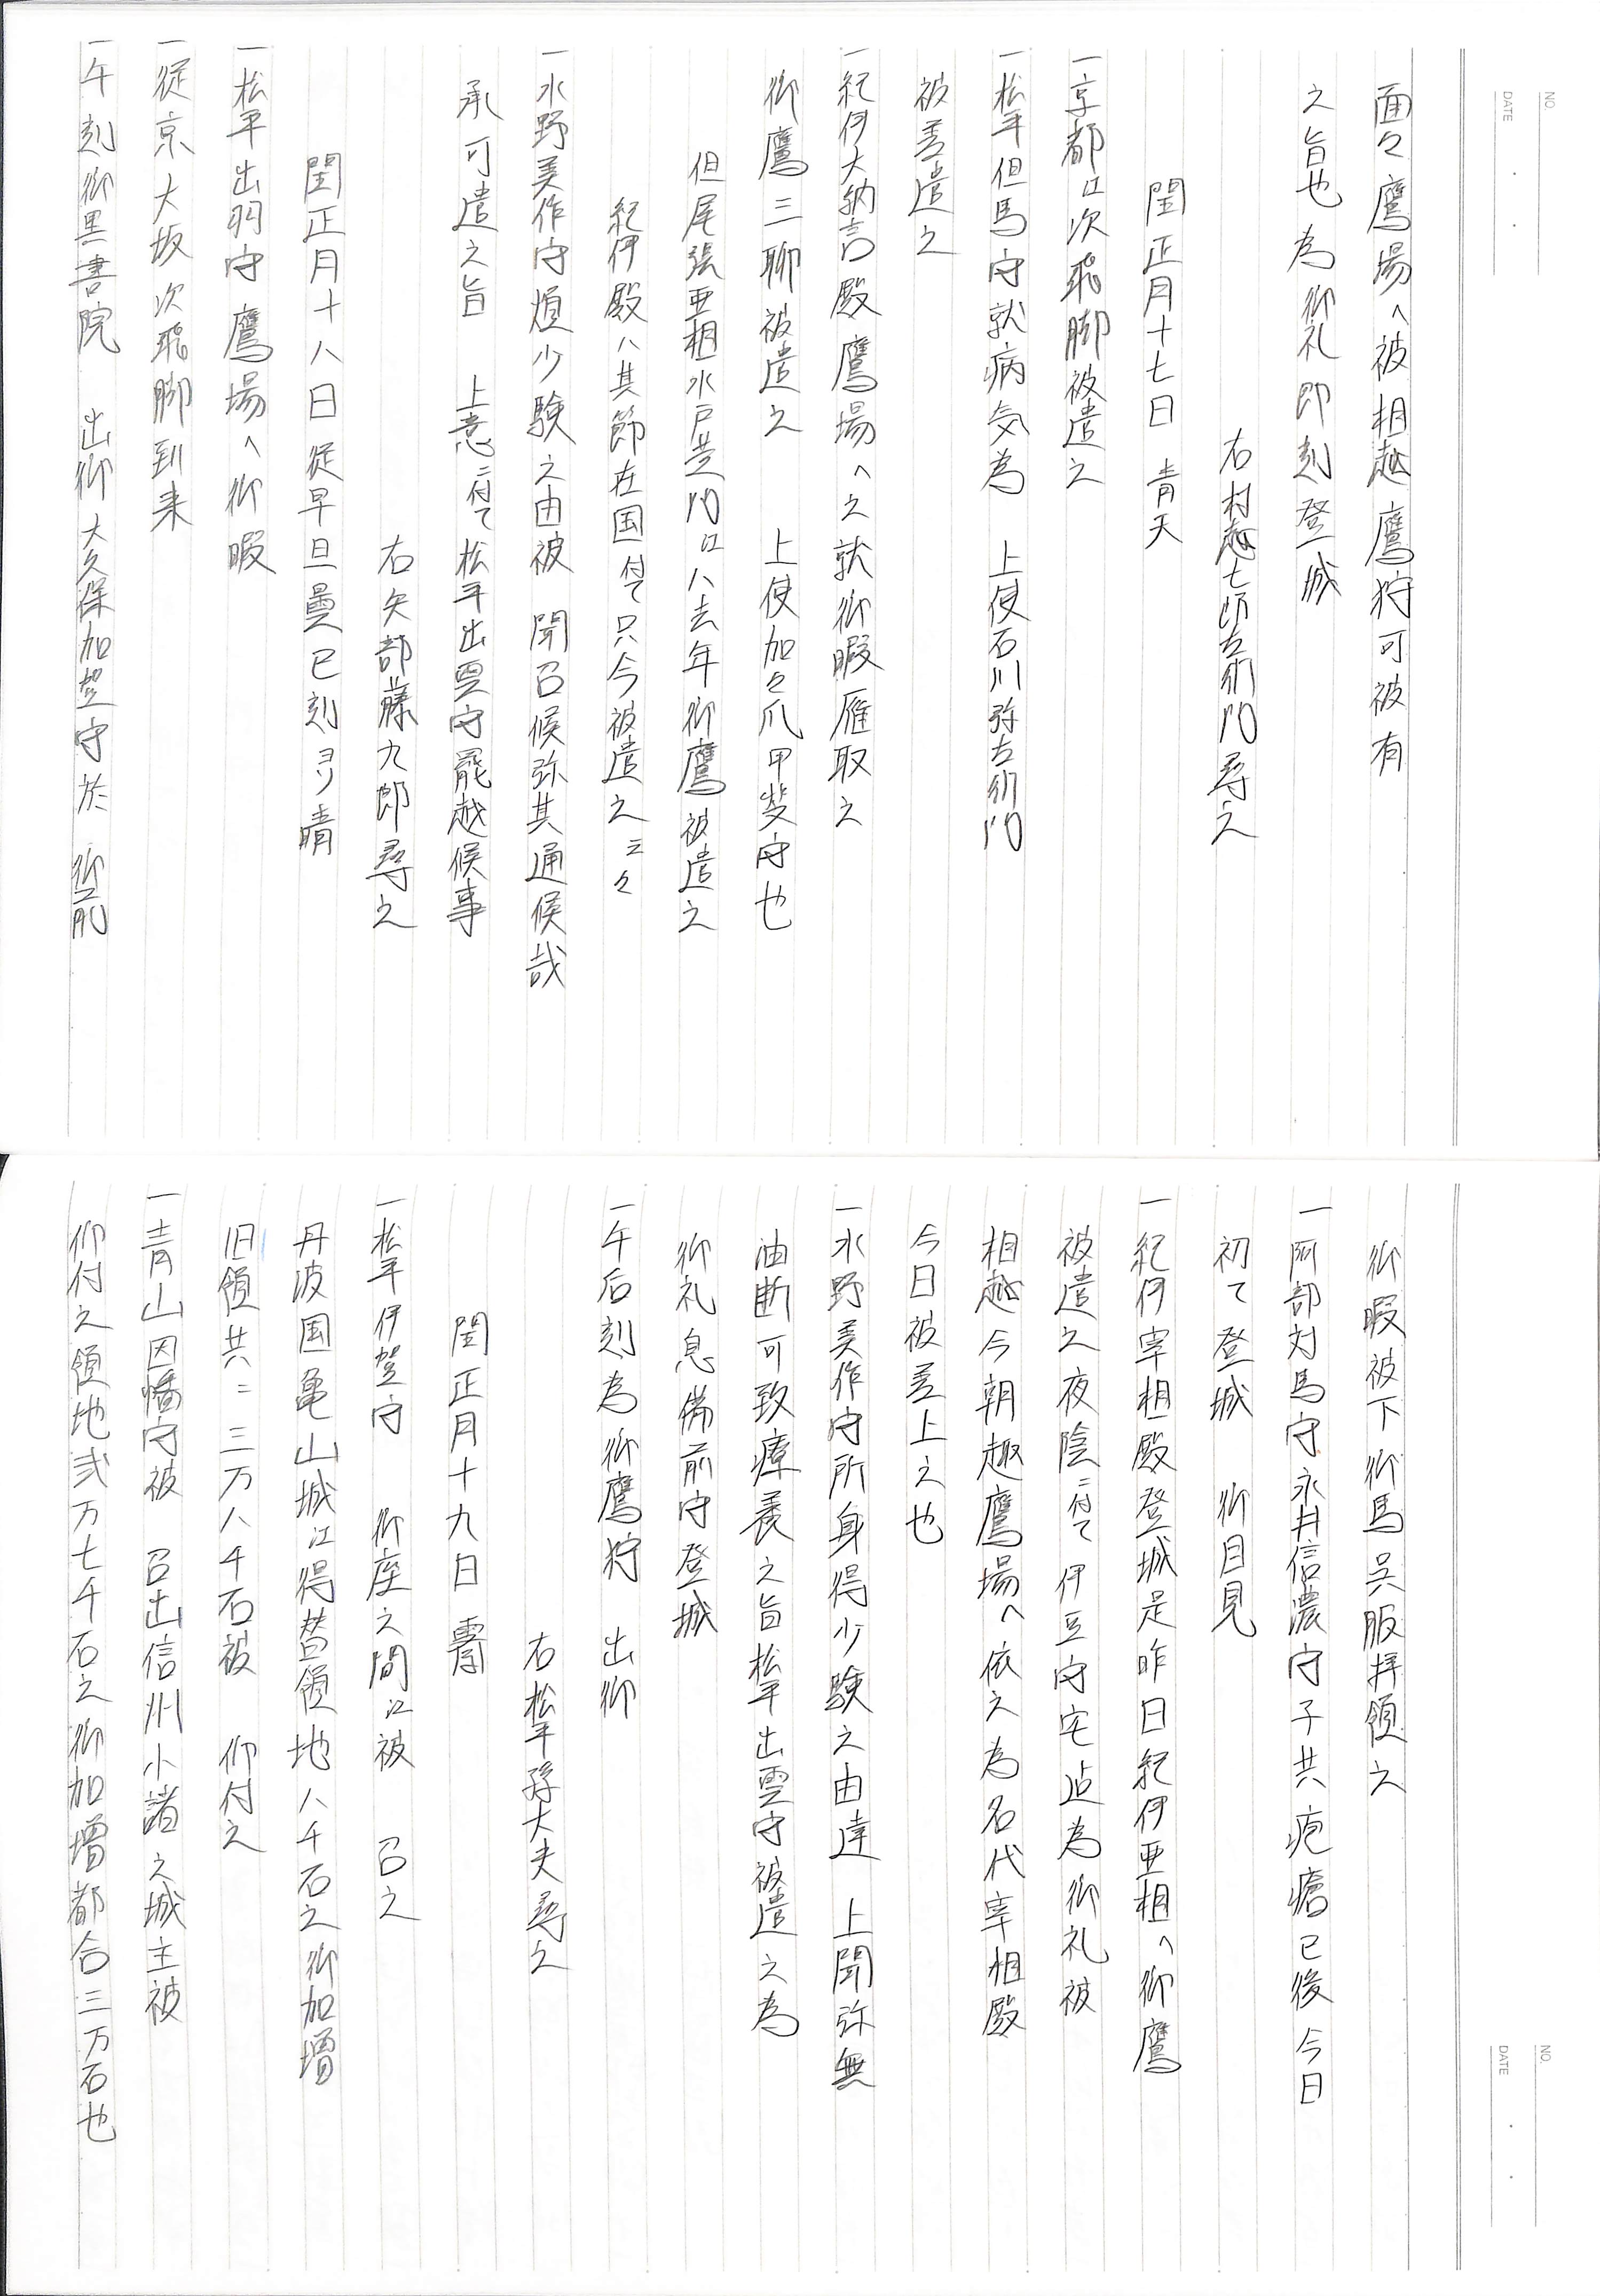 NO.
DATE
面々鷹場へ被相越鷹狩可被有
之旨也為御礼即刻登城
右村越七郎左衛門尋之
閏正月十七日 青天
一京都江次飛脚被遣之
一松平但馬守就病気為 上使石川弥左衛門
被差遣之
一紀伊大納言殿鷹場へ之就御暇雁取之
御鷹三聯被遣之 上使加々爪甲斐守也
但尾張亜相水戸黄門江ハ去年御鷹被遣之
紀伊殿ハ其節在国ニ付て只今被遣之云々
一水野美作守煩少験之由被 聞召候弥其通候哉
承可遣之旨 上意ニ付て松平出雲守罷越候事
右矢部藤九郎尋之
閏正月十八日従早旦曇巳刻ヨリ晴
一松平出羽守鷹場へ御暇
一従京大坂次飛脚到来
一午刻御黒書院 出御大久保加賀守於 御前
NO.
DATE
御暇被下御馬呉服拝領之
一阿部対馬守永井信濃守子共疱瘡已後今日
初て登城 御目見
一紀伊宰相殿登城是昨日紀伊亜相へ御鷹
被遣之夜陰ニ付て伊豆守宅迄為御礼被
相越今朝趣鷹場へ依之為名代宰相殿
今日被差上之也
一水野美作守所身得少験之由達 上聞弥無
油断可致療養之旨松平出雲守被遣之為
御礼息備前守登城
一午后刻為御鷹狩 出御
右松平孫大夫尋之
閏正月十九日 霽
一松平伊賀守 御座之間江被 召之
丹波国亀山城江得替領地八千石之御加増
旧領共ニ三万八千石被 仰付之
一青山因幡守被 召出信州小諸之城主被
仰付之領地弐万七千石之御加増都合三万石也